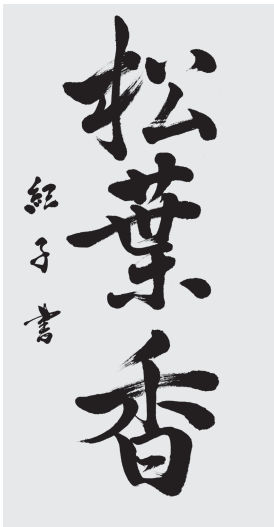 松葉香
紅子書